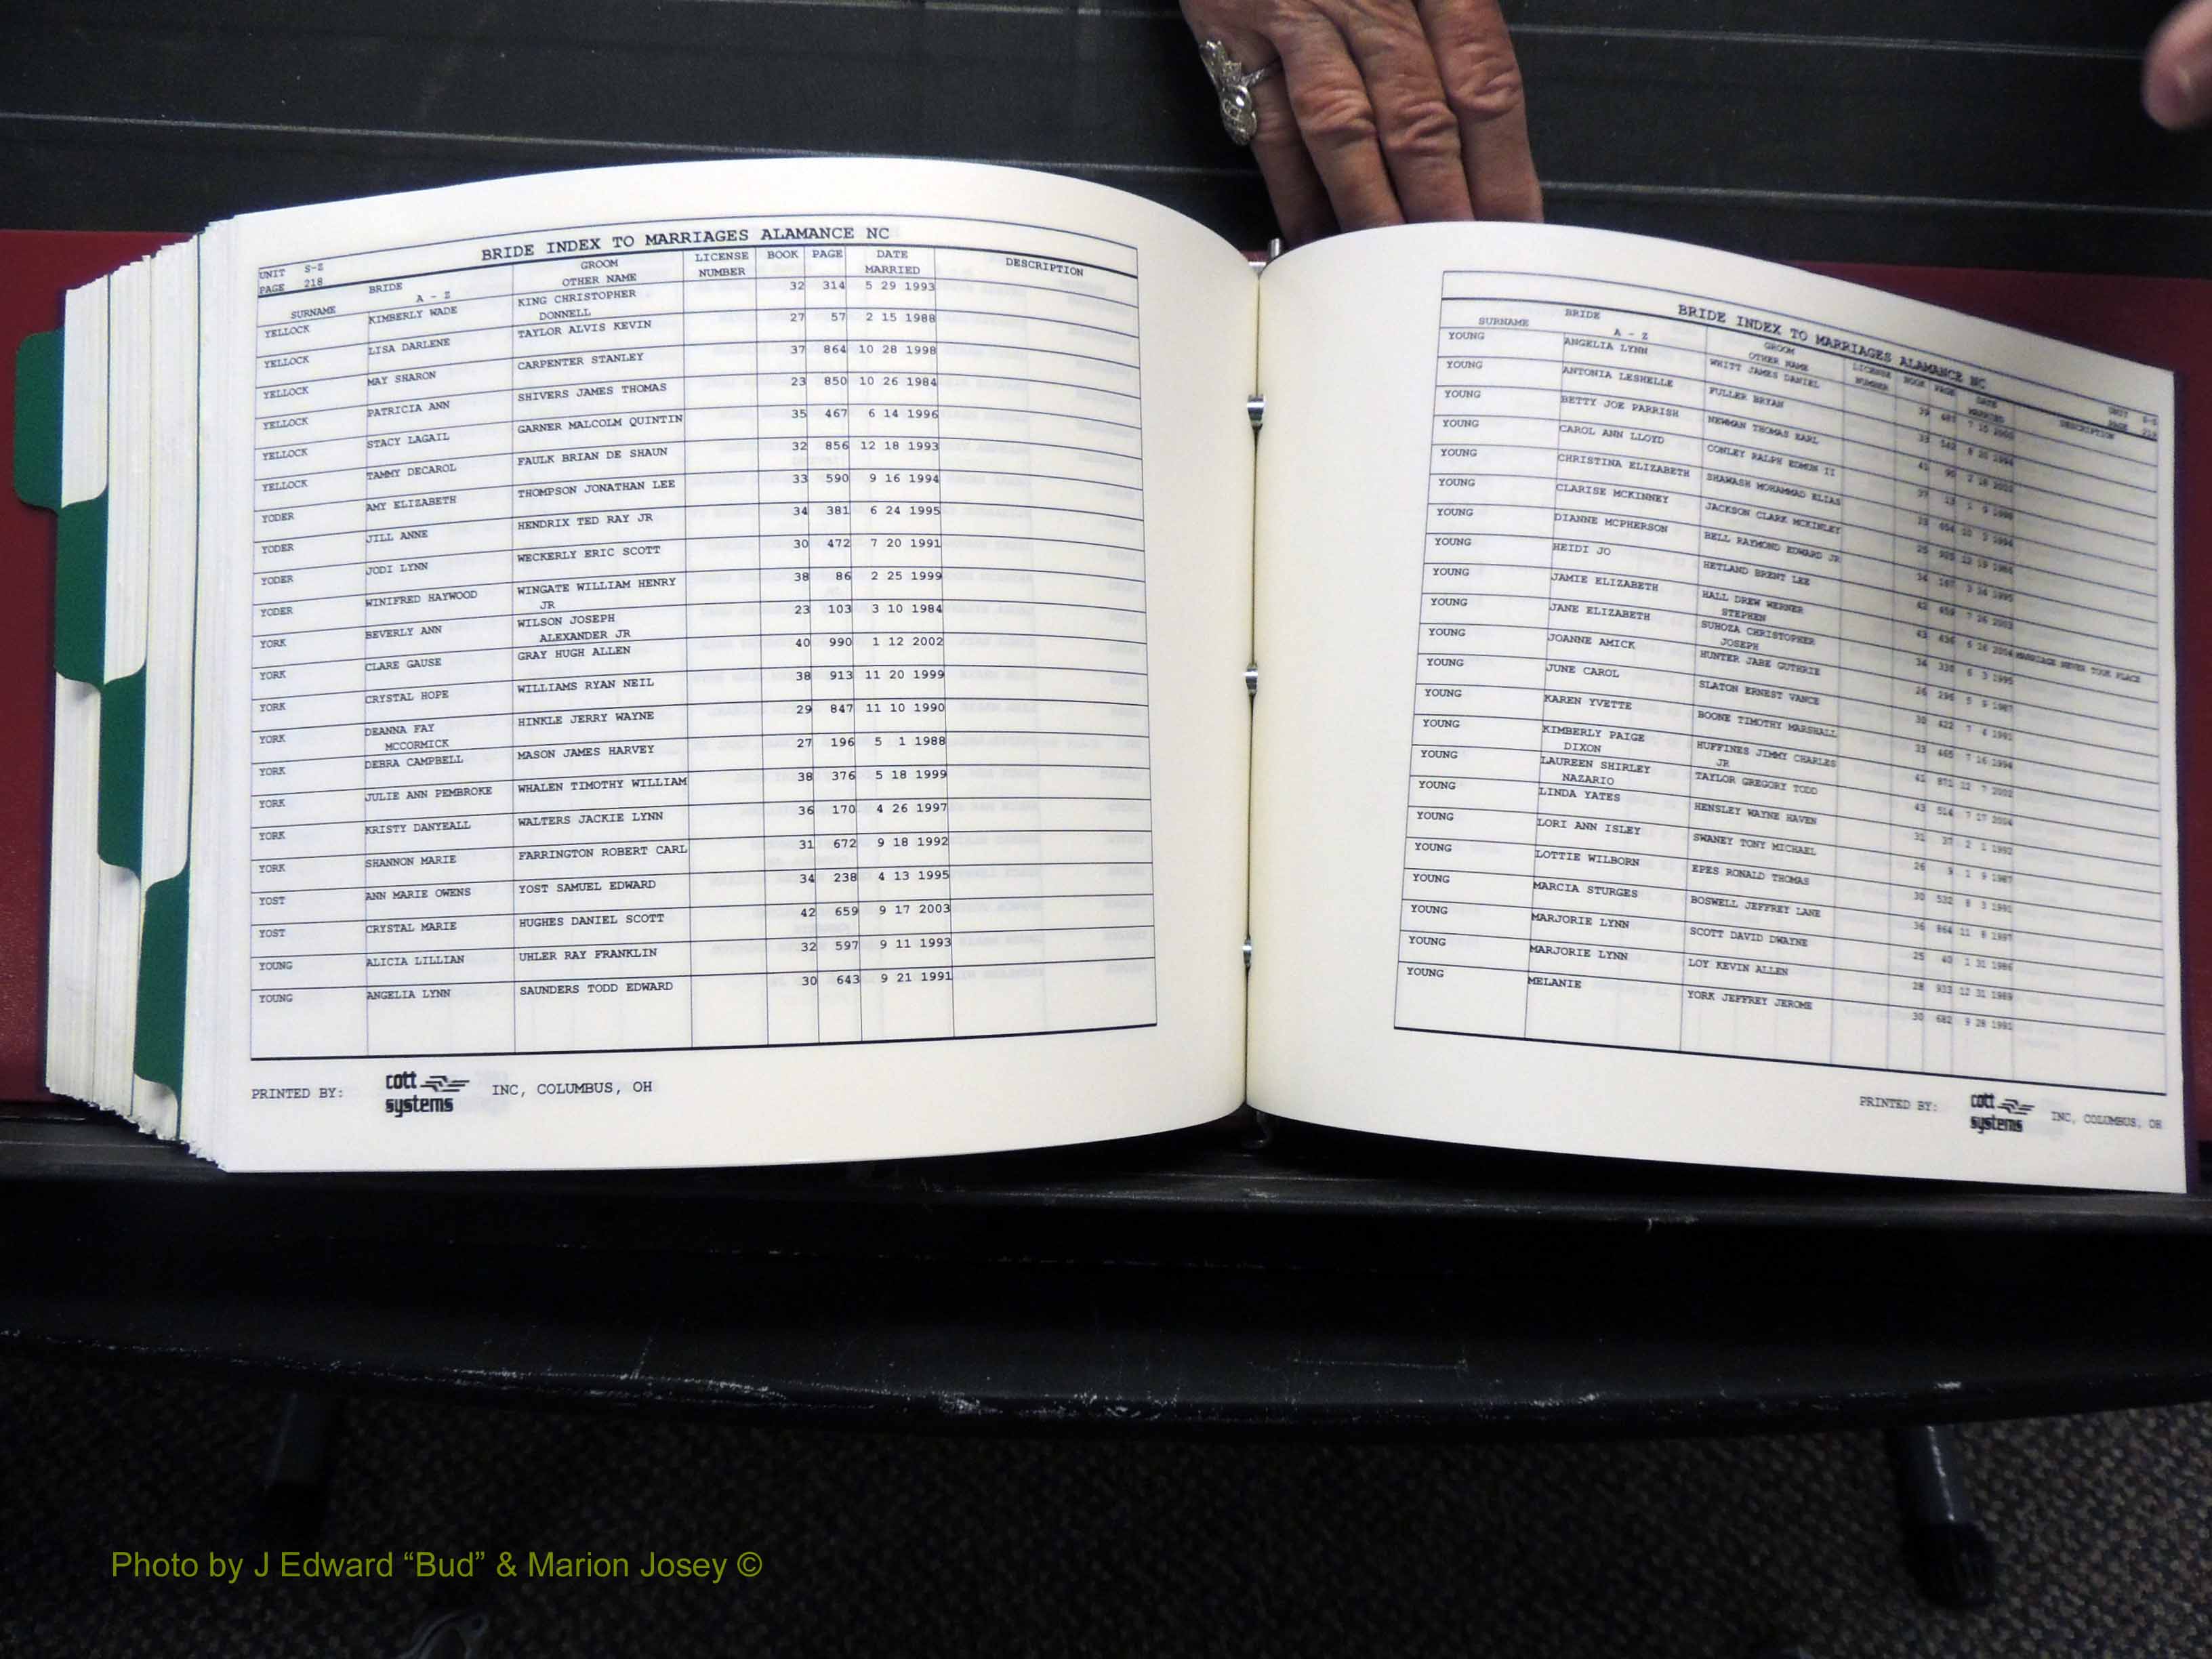 BRIDE INDEX TO MARRIAGES ALAMANCE NC
UNIT S-Z
PAGE 218
SURNAME BRIDE A - Z GROOM OTHER NAME LICENSE NUMBER BOOK PAGE DATE MARRIED DESCRIPTION
YELLOCK KIMBERLY WADE KING CHRISTOPHER DONNELL 32 314 5 29 1993
YELLOCK LISA DARLENE TAYLOR ALVIS KEVIN 27 57 2 15 1988
YELLOCK MAY SHARON CARPENTER STANLEY 37 864 10 28 1998
YELLOCK PATRICIA ANN SHIVERS JAMES THOMAS 23 850 10 26 1984
YELLOCK STACY LAGAIL GARNER MALCOLM QUINTIN 35 467 6 14 1996
YELLOCK TAMMY DECAROL FAULK BRIAN DE SHAUN 32 856 12 18 1993
YODER AMY ELIZABETH THOMPSON JONATHAN LEE 33 590 9 16 1994
YODER JILL ANNE HENDRIX TED RAY JR 34 381 6 24 1995
YODER JODI LYNN WECKERLY ERIC SCOTT 30 472 7 20 1991
YODER WINIFRED HAYWOOD WINGATE WILLIAM HENRY JR 38 86 2 25 1999
YORK BEVERLY ANN WILSON JOSEPH ALEXANDER JR 23 103 3 10 1984
YORK CLARE GAUSE GRAY HUGH ALLEN 40 990 1 12 2002
YORK CRYSTAL HOPE WILLIAMS RYAN NEIL 38 913 11 20 1999
YORK DEANNA FAY MCCORMICK HINKLE JERRY WAYNE 29 847 11 10 1990
YORK DEBRA CAMPBELL MASON JAMES HARVEY 27 196 5 1 1988
YORK JULIE ANN PEMBROKE WHALEN TIMOTHY WILLIAM 38 376 5 18 1999
YORK KRISTY DANYEALL WALTERS JACKIE LYNN 36 170 4 26 1997
YORK SHANNON MARIE FARRINGTON ROBERT CARL 31 672 9 18 1992
YOST ANN MARIE OWENS YOST SAMUEL EDWARD 34 238 4 13 1995
YOST CRYSTAL MARIE HUGHES DANIEL SCOTT 42 659 9 17 2003
YOUNG ALICIA LILLIAN UHLER RAY FRANKLIN 32 597 9 11 1993
YOUNG ANGELIA LYNN SAUNDERS TODD EDWARD 30 643 9 21 1991
PRINTED BY: cott systems INC, COLUMBUS, OH
BRIDE INDEX TO MARRIAGES ALAMANCE NC
UNIT S-Z
PAGE
SURNAME BRIDE A - Z GROOM OTHER NAME LICENSE NUMBER BOOK PAGE DATE MARRIED DESCRIPTION
YOUNG ANGELIA LYNN WHITT JAMES DANIEL
YOUNG ANTONIA LESHELLE FULLER BRYAN
YOUNG BETTY JOE PARRISH NEWMAN THOMAS EARL
YOUNG CAROL ANN LLOYD CONLEY RALPH EDMON II
YOUNG CHRISTINA ELIZABETH SHAWASH MOHAMMAD ELIAS
YOUNG CLARISE MCKINNEY JACKSON CLARK MCKINLEY
YOUNG DIANNE MCPHERSON BELL RAYMOND EDWARD JR
YOUNG HEIDI JO HETLAND BRENT LEE
YOUNG JAMIE ELIZABETH HALL DREW WERNER STEPHEN
YOUNG JANE ELIZABETH SUHOZA CHRISTOPHER JOSEPH MARRIAGE NEVER TOOK PLACE
YOUNG JOANNE AMICK HUNTER JABE GUTHRIE
YOUNG JUNE CAROL SLATON ERNEST VANCE
YOUNG KAREN YVETTE BOONE TIMOTHY MARSHALL
YOUNG KIMBERLY PAIGE DIXON HUFFINES JIMMY CHARLES JR
YOUNG LAUREEN SHIRLEY NAZARIO TAYLOR GREGORY TODD
YOUNG LINDA YATES HENSLEY WAYNE HAVEN
YOUNG LORI ANN ISLEY SWANEY TONY MICHAEL
YOUNG LOTTIE WILBORN EPES RONALD THOMAS
YOUNG MARCIA STURGES BOSWELL JEFFREY LANE
YOUNG MARJORIE LYNN SCOTT DAVID DWAYNE
YOUNG MARJORIE LYNN LOY KEVIN ALLEN
YOUNG MELANIE YORK JEFFREY JEROME
PRINTED BY: cott systems INC, COLUMBUS, OH
Photo by J Edward “Bud” & Marion Josey ©